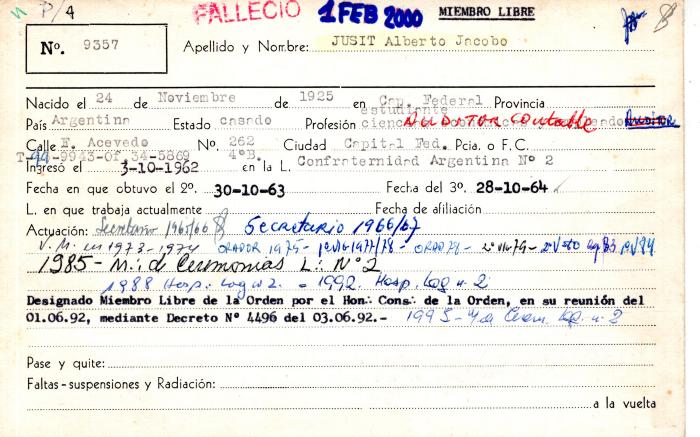 P/4 FALLECIO 1 FEB 2000 MIEMBRO LIBRE
Nº. 9357 Apellido y Nombre: JUSIT Alberto Jacobo
Nacido el 24 de Noviembre de 1925 en Cap. Federal Provincia
estudiante
País Argentina Estado casado Profesión AUDITOR Contable AUDITOR
Calle E. Acevedo No. 262 Ciudad Capital Fed. Pcia. o F.C.
4ºB.
Ingresó el 3-10-1962 en la L. Confraternidad Argentina Nº 2
Fecha en que obtuvo el 2º. 30-10-63 Fecha del 3º. 28-10-64
L. en que trabaja actualmente Fecha de afiliación
Actuación: Secretario 1965/66 Secretario 1966/67
V. M. en 1973-1974 ORADOR 1975 - 1977/78 - ORAD 78 - 2º Vig 79 -
1985 - M∴ de Ceremonias L∴ Nº 2
1988 Hosp. Log nº 2. - 1992. Hosp. Log n. 2
Designado Miembro Libre de la Orden por el Hon∴ Cons∴ de la Orden, en su reunión del
01.06.92, mediante Decreto Nº 4496 del 03.06.92.- 1995 - M de Cerem. Log. n. 2
Pase y quite:
Faltas - suspensiones y Radiación:
a la vuelta